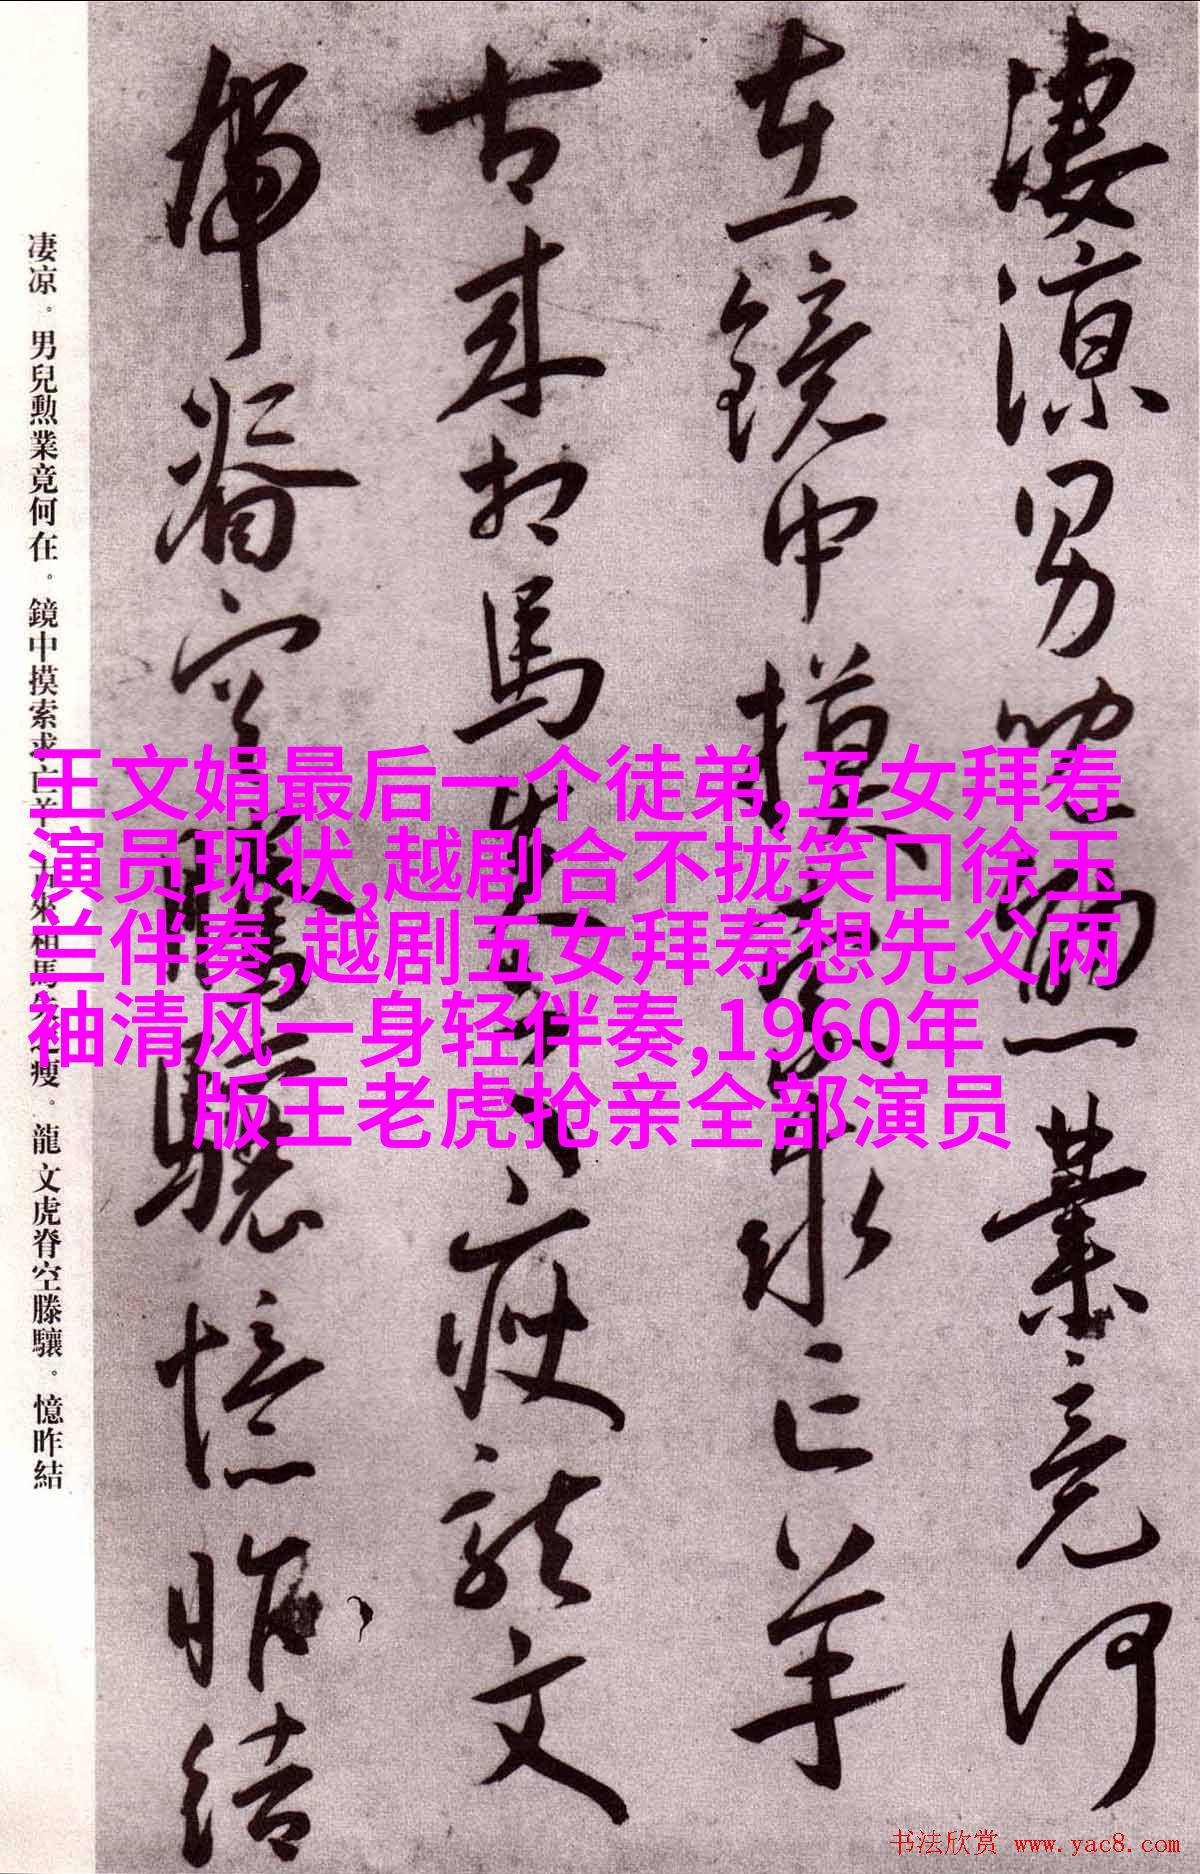 淒涼男兒勳業竟何
在鏡中摸索求亡羊
古来相馬失之瘦龍文
虎脊空騰驤憶昨結
凄凉。男兒勲業竟何在。鏡中摸索求亡羊。古來相馬失之瘦。龍文虎脊空滕驤。憶昨結
王文娟最后一个徒弟,五女拜寿
演员现状,越剧合不拢笑口徐玉
兰伴奏,越剧五女拜寿想先父两
袖清风一身轻伴奏,1960年
版王老虎抢亲全部演员
书法欣赏 www.yac8.com